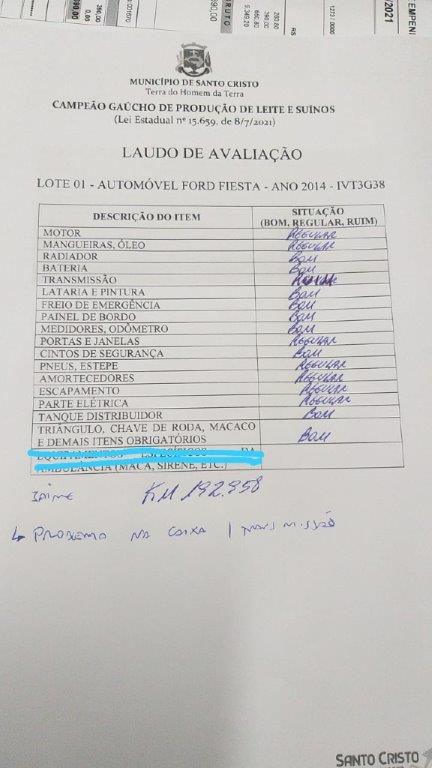 2021
TEMPENI
1272 / 0000
R$
290,80
398,00
660,80
5.349,20
BRUTO
390,00
386,00
398,00
MUNICÍPIO DE SANTO CRISTO
Terra do Homem da Terra
CAMPEÃO GAÚCHO DE PRODUÇÃO DE LEITE E SUÍNOS
(Lei Estadual nº 15.659, de 8/7/2021)
LAUDO DE AVALIAÇÃO
LOTE 01 - AUTOMÓVEL FORD FIESTA - ANO 2014 - IVT3G38
DESCRIÇÃO DO ITEM SITUAÇÃO
(BOM, REGULAR, RUIM)
MOTOR REGULAR
MANGUEIRAS, ÓLEO REGULAR
RADIADOR BOM
BATERIA BOM
TRANSMISSÃO
LATARIA E PINTURA BOM
FREIO DE EMERGÊNCIA BOM
PAINEL DE BORDO BOM
MEDIDORES, ODÔMETRO BOM
PORTAS E JANELAS REGULAR
CINTOS DE SEGURANÇA BOM
PNEUS, ESTEPE REGULAR
AMORTECEDORES REGULAR
ESCAPAMENTO REGULAR
PARTE ELÉTRICA REGULAR
TANQUE DISTRIBUIDOR BOM
TRIÂNGULO, CHAVE DE RODA, MACACO
E DEMAIS ITENS OBRIGATÓRIOS BOM
EQUIPAMENTOS ESPECÍFICOS DA
AMBULÂNCIA (MACA, SIRENE, ETC.)
KM 192.958
PROBLEMA NA CAIXA / TRANSMISSÃO
SANTO CRISTO